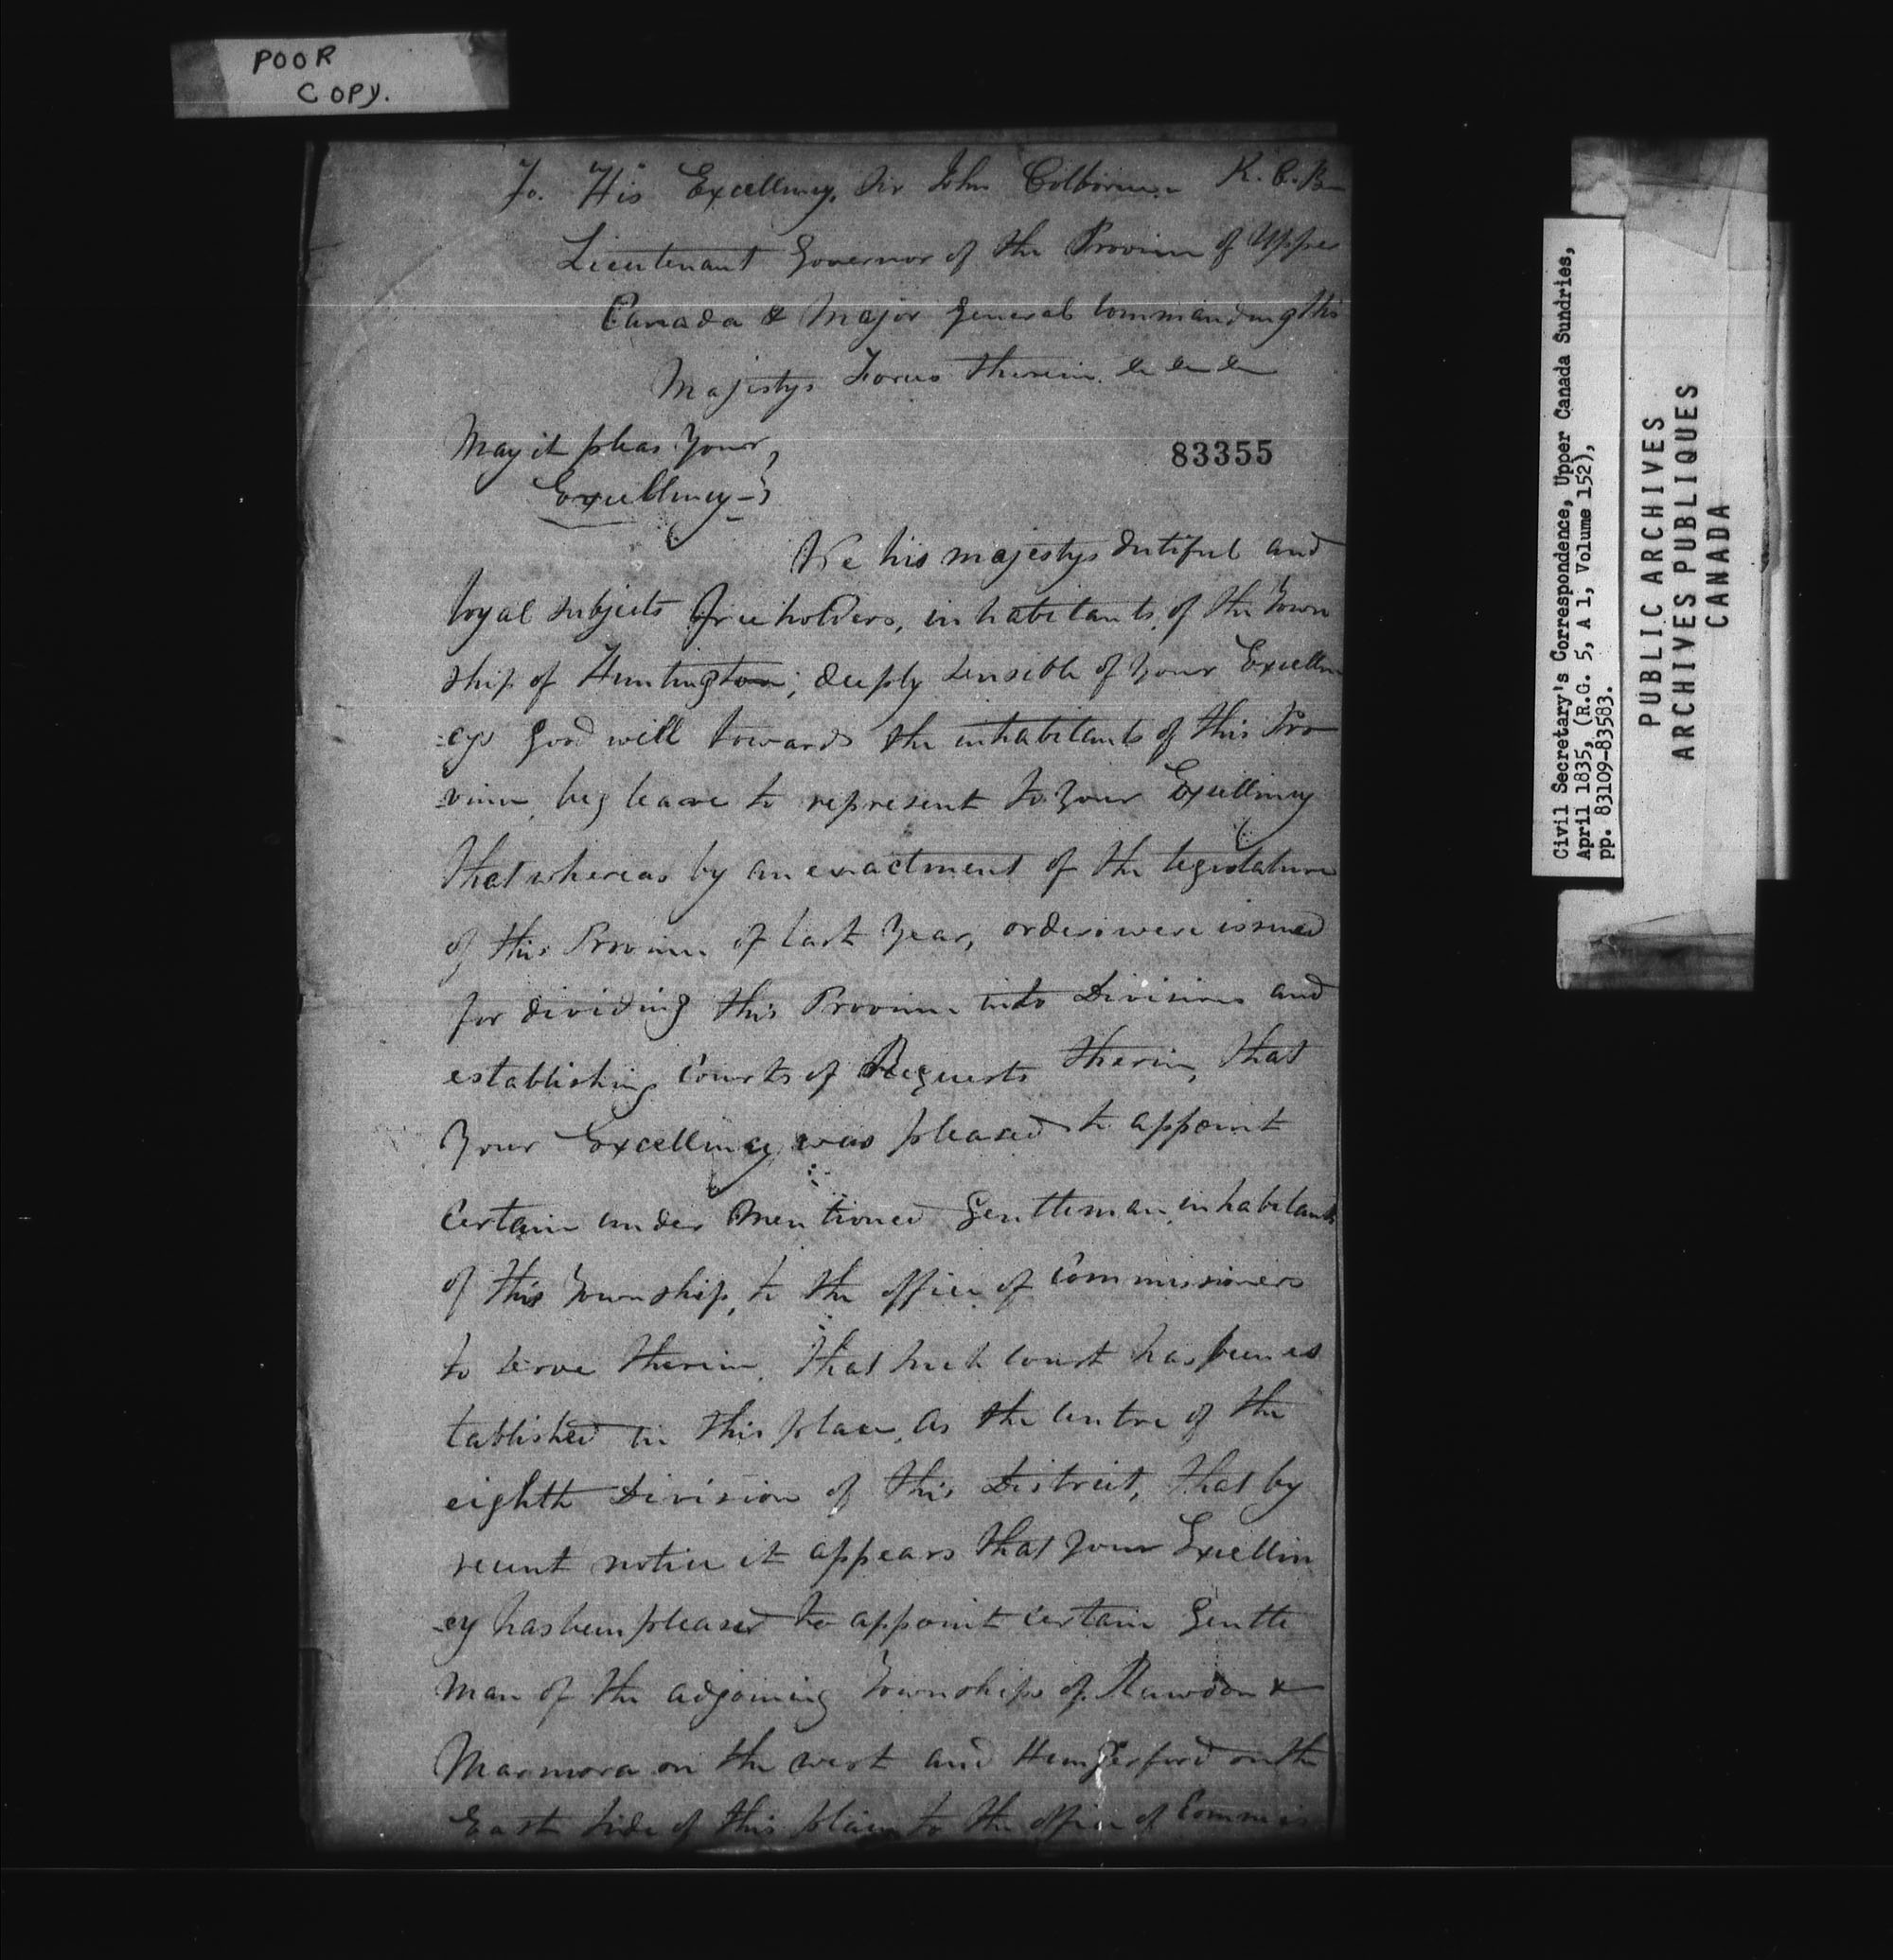 POOR
COPY.
To. His Excellency, Sir John Colborne. K. C. B
Lieutenant Governor of the Province of Upper
Canada & Major General Commanding His
Majestys Forces therein. &c &c &c
May it pleas Your
83355
Excellency
We his majestys dutiful and
loyal subjects Freeholders, inhabitants, of the Town
ship of Huntington; deeply sensible of Your Excellen
cys Good will towards the inhabitants of this Pro
vince, beg leave to represent to Your Excellency
That whereas by an enactment of the legislature
of this Province of last Year, orders were issued
for dividing this Province into Divisions and
establishing Courts of Requests therein, that
Your Excellency was pleased to appoint
Certain under Mentioned Gentleman, inhabitants
of this Township, to the office of Commissioners
to serve therein. That such Court has been es
tablished in this place, as the Centre of the
eighth Division of this District, that by
recent notice it appears that Your Excellen
cy has been pleased to appoint certain Gentle
man of the adjoining Townships of Rawdon &
Marmora on the west and Hungerford on the
East side of this place to the office of Commis
Civil Secretary's Correspondence, Upper Canada Sundries,
April 1835, (R.G. 5, A 1, Volume 152),
pp. 83109-83583.
PUBLIC ARCHIVES
ARCHIVES PUBLIQUES
CANADA